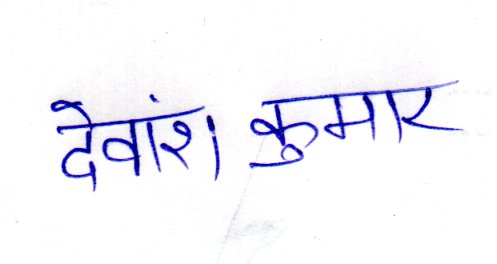 देवांश कुमार